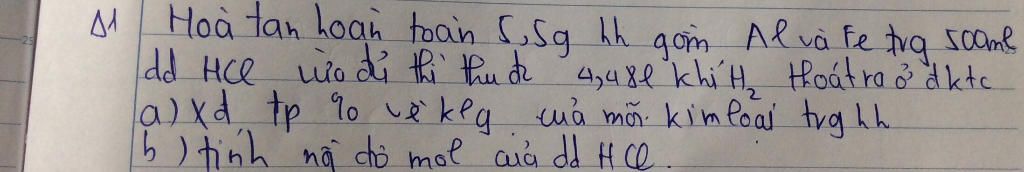 Δ1 Hoà tan hoàn toàn 5,5g hh gồm Al và Fe trg 500ml
dd HCl vừa đủ thì thu đc 4,48l khí H₂ thoát ra ở đktc
a) Xđ tp % về klg của mỗi kim loại trg hh
b) tính nồ độ mol của dd HCl.